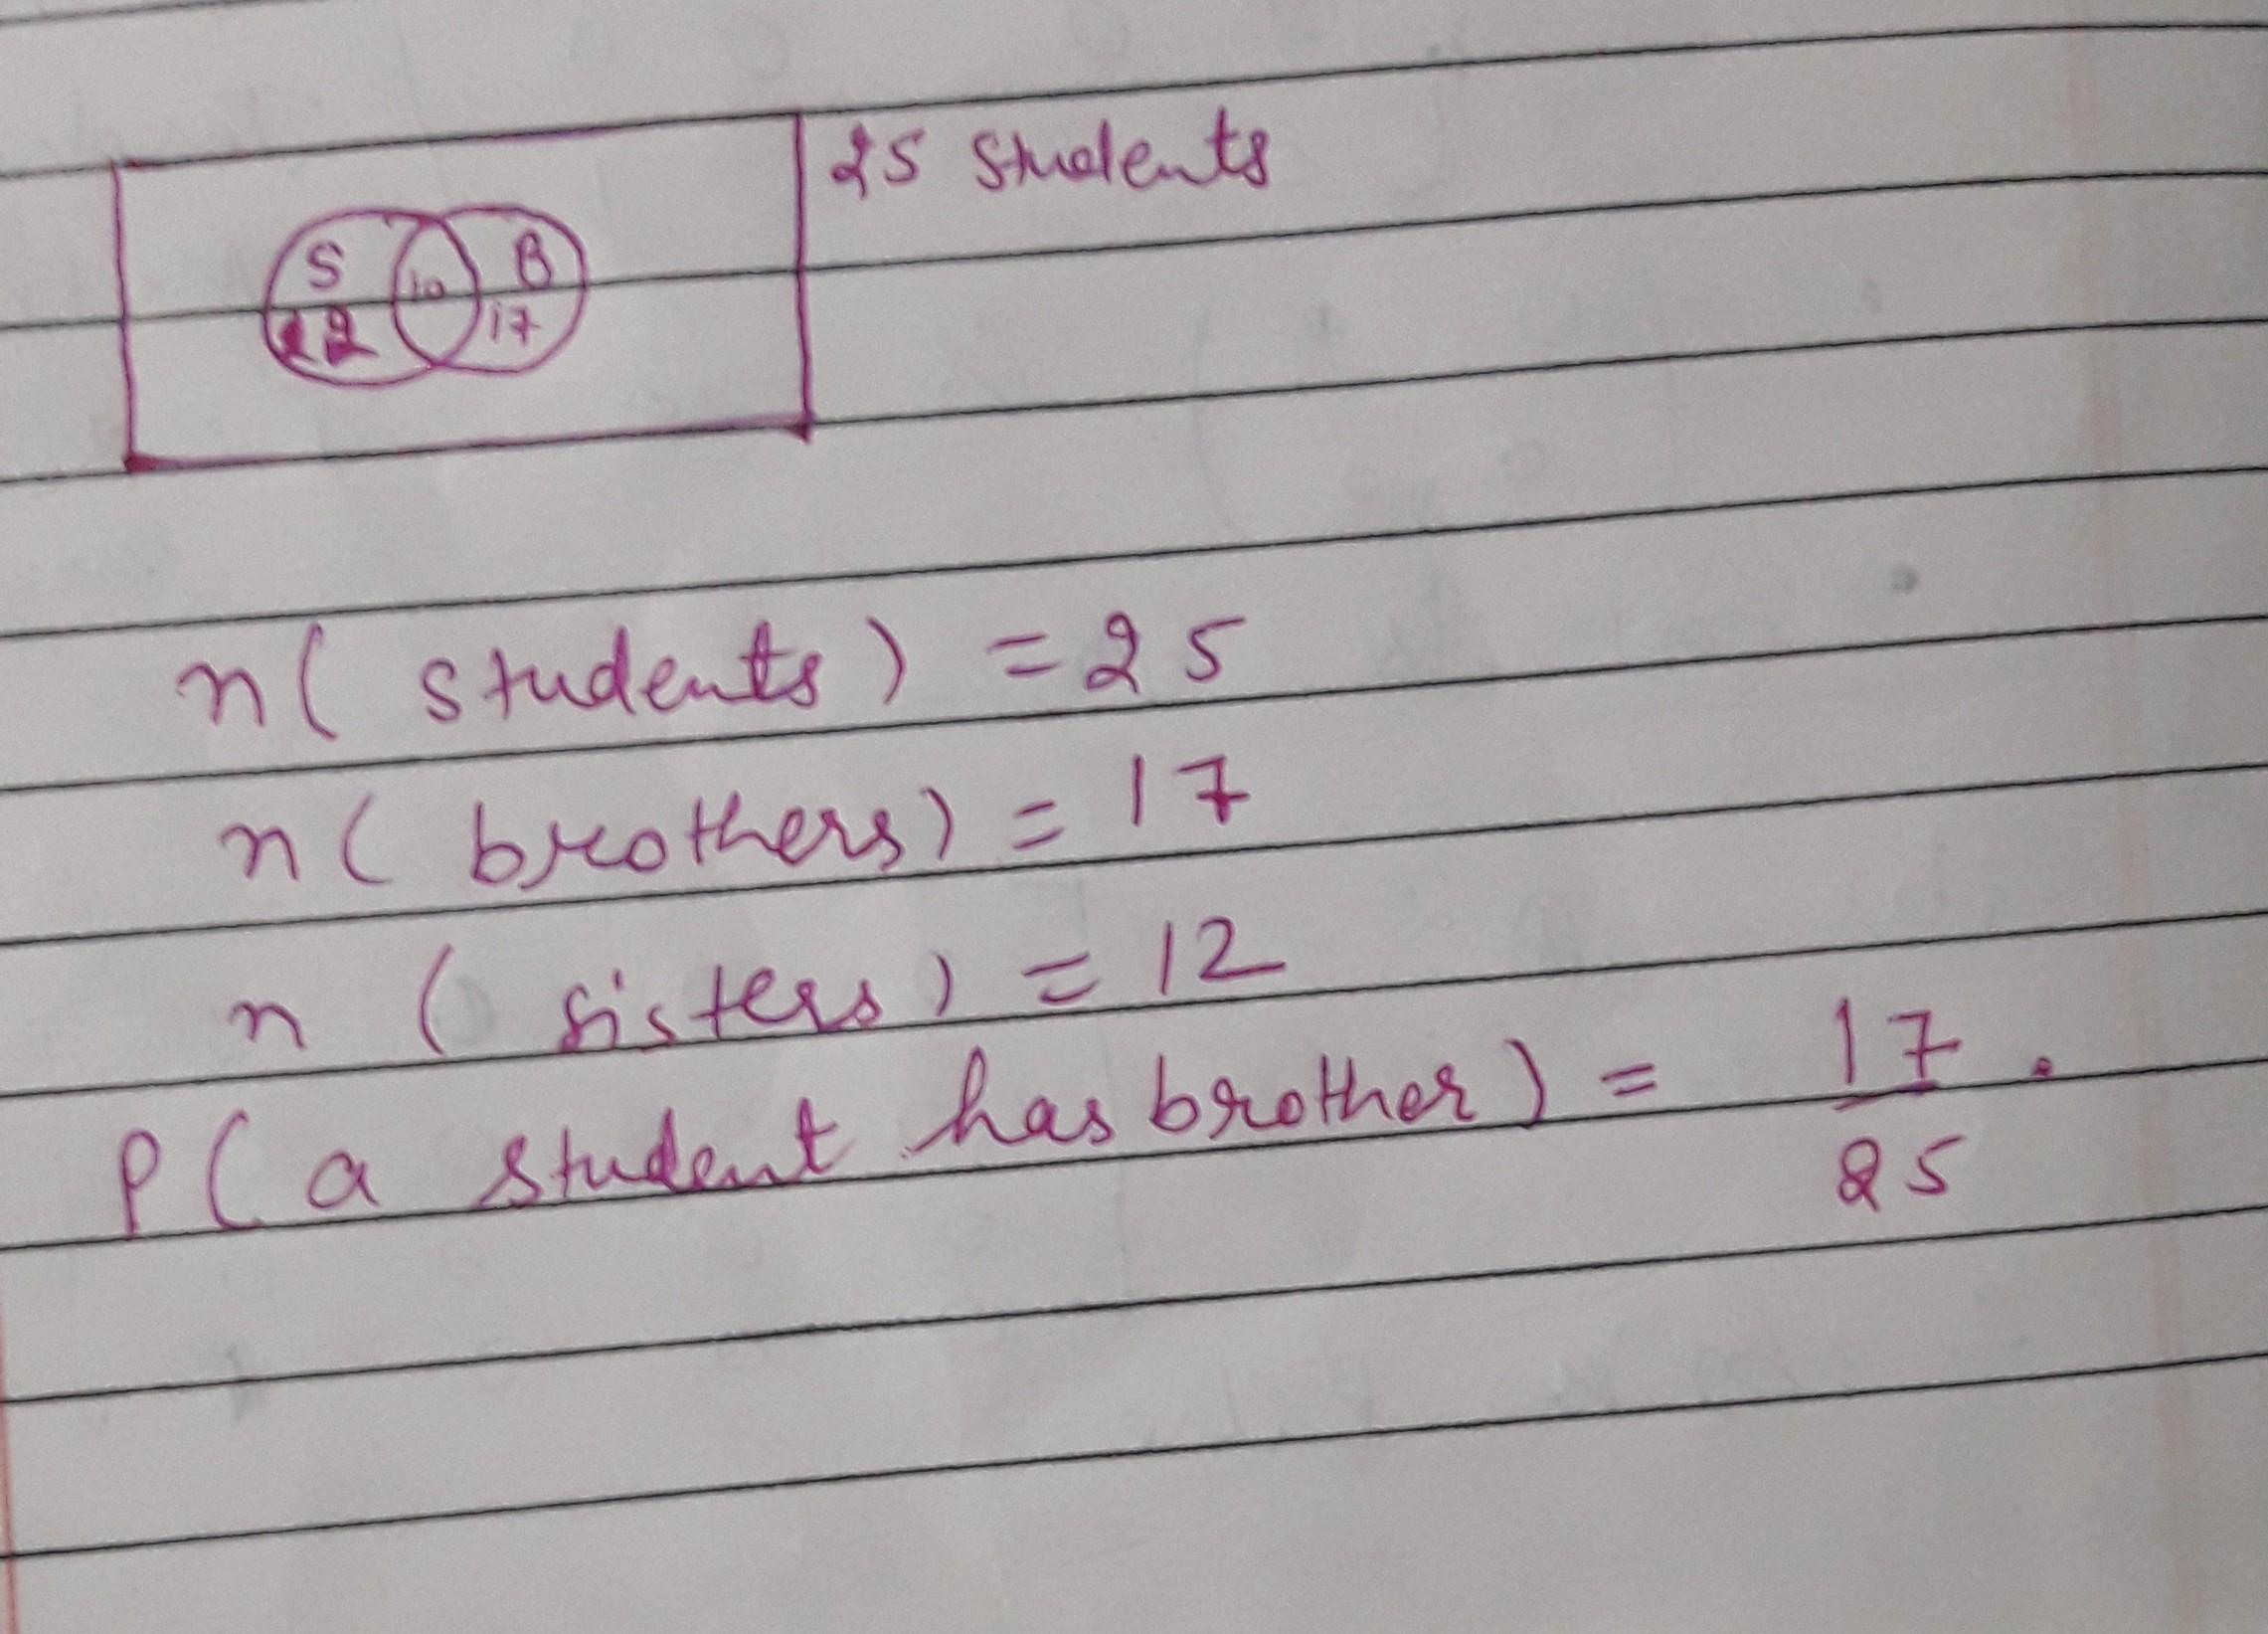 25 students
S B
10
12 17
n( students ) = 25
n( brothers) = 17
n ( sisters ) = 12
P( a student has brother ) = 17 .
25